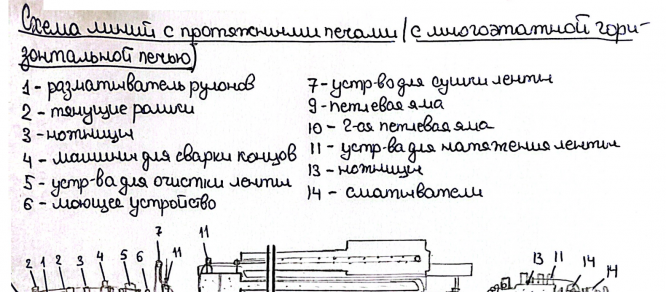 Схема линий с протяжными печами (с многоэтажной гори-
зонтальной печью)
1 - разматыватель рулонов
2 - тянущие ролики
3 - ножницы
4 - машины для сварки концов
5 - устр-ва для очистки ленты
6 - моющее устройство
7 - устр-во для сушки ленты
9 - петлевая яма
10 - 2-ая петлевая яма
11 - устр-ва для натяжения ленты
13 - ножницы
14 - сматыватели
7 11 11 13 11 14
2 1 2 3 4 5 6 14